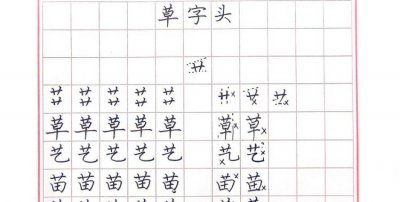 草字头
艹
艹 艹 艹 艹 艹 艹 艹 艹
艹 艹 艹 艹 艹
草 草 草 草 草 草 草
艺 艺 艺 艺 艺 艺 艺
苗 苗 苗 苗 苗 苗 苗